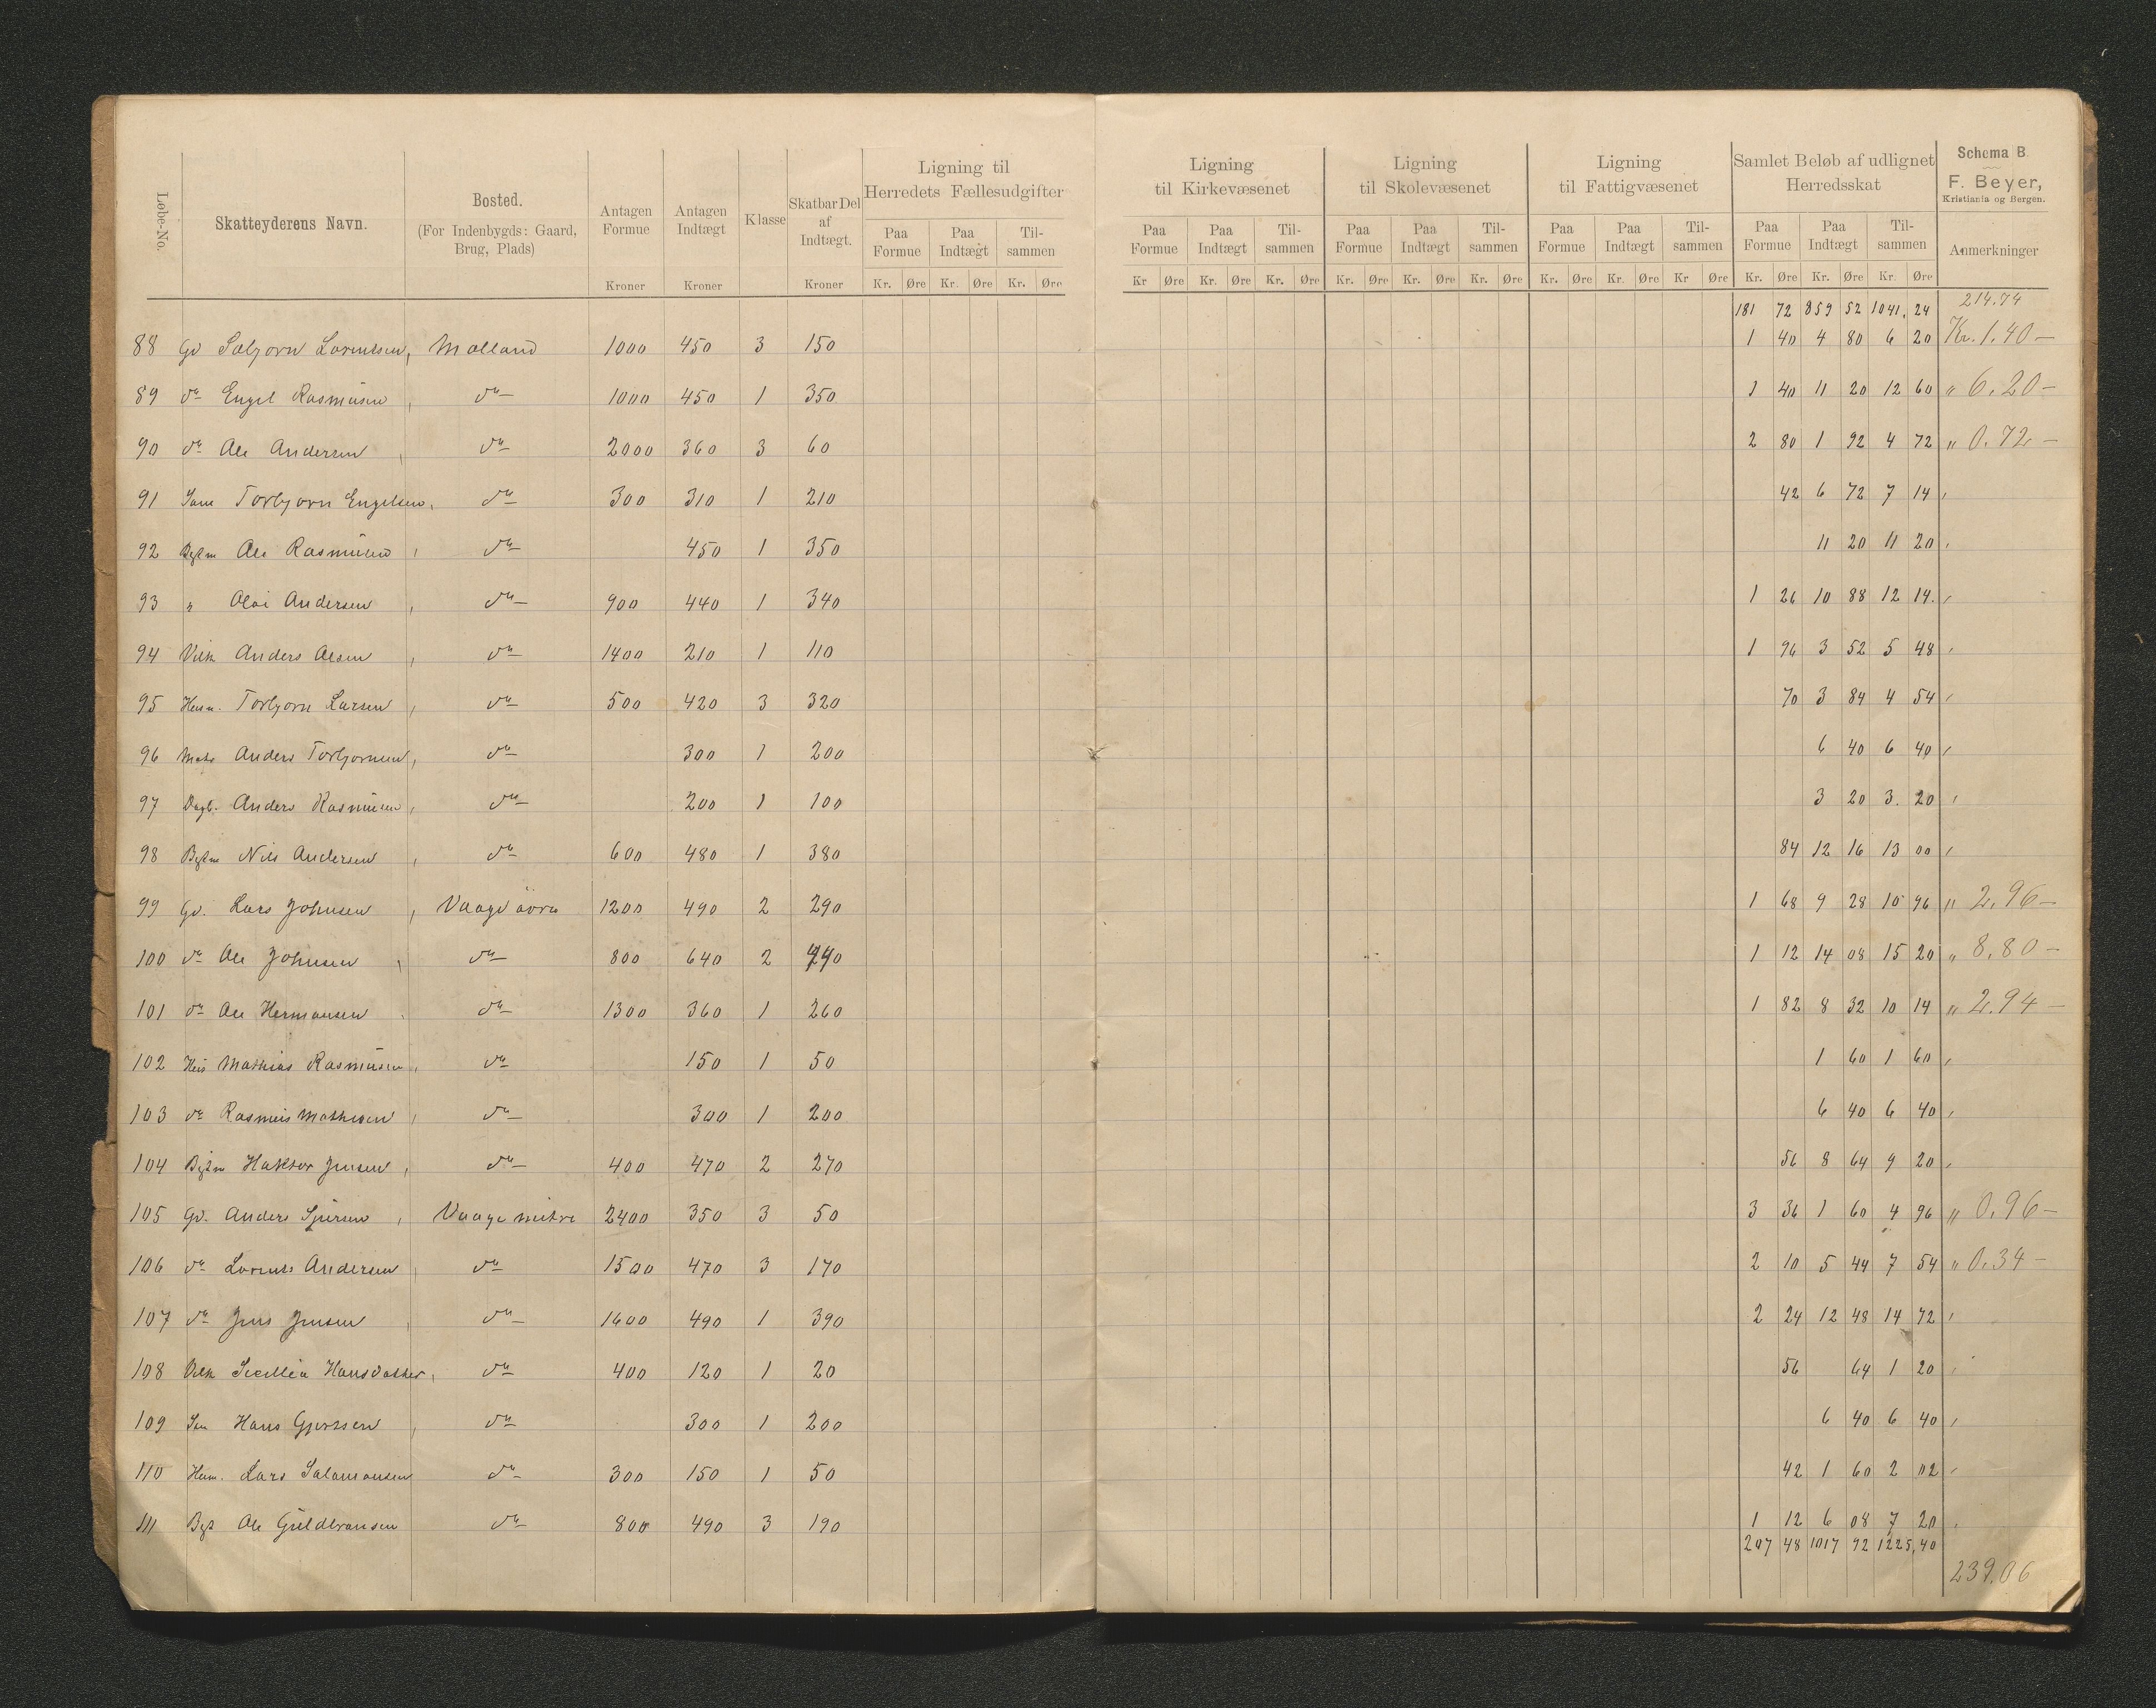 Løbe-No. Skatteyderens Navn. Bosted. (For Indenbygds: Gaard, Brug, Plads) Antagen Formue Kroner Antagen Indtægt Kroner Klasse Skatbar Del af Indtægt. Kroner Ligning til Herredets Fællesudgifter Paa Formue Paa Indtægt Tilsammen Kr. Øre Kr. Øre Kr. Øre
Ligning til Kirkevæsenet Paa Formue Paa Indtægt Tilsammen Kr Øre Kr. Øre Kr. Øre
Ligning til Skolevæsenet Paa Formue Paa Indtægt Tilsammen Kr. Øre Kr. Øre Kr. Øre
Ligning til Fattigvæsenet Paa Formue Paa Indtægt Tilsammen Kr. Øre Kr. Øre Kr Øre
Samlet Beløb af udlignet Herredsskat Paa Formue Paa Indtægt Tilsammen Kr. Øre Kr. Øre Kr. Øre
Schema B.
F. Beyer,
Kristiania og Bergen.
Anmerkninger
181 72 859 52 1041, 24 214.74
88 Gd Lorentsen, Molland 1000 450 3 150 1 40 4 80 6 20 Kr. 1.40 —
89 do Engel Rasmusen, do 1000 450 1 350 1 40 11 20 12 60 " 6.20 —
90 do Ole Andersen, do 2000 360 3 60 2 80 1 92 4 72 " 0.72 —
91 Torbjorn Engelsen, do 300 310 1 210 42 6 72 7 14
92 Ole Rasmusen, do 450 1 350 11 20 11 20
93 " Andersen, do 900 440 1 340 1 26 10 88 12 14.
94 Anders Olsen, do 1400 210 1 110 1 96 3 52 5 48
95 Husm. Torbjorn Larsen, do 500 420 3 320 70 3 84 4 54
96 Anders Torbjornsen, do 300 1 200 6 40 6 40
97 Anders Rasmusen, do 200 1 100 3 20 3. 20
98 Nils Andersen, do 600 480 1 380 84 12 16 13 00
99 Gd. Lars Johnsen, Vaage övre 1200 490 2 290 1 68 9 28 10 96 " 2.96 —
100 do Ole Johnsen, do 800 640 2 440 1 12 14 08 15 20 " 8.80 —
101 do Ole Hermansen, do 1300 360 1 260 1 82 8 32 10 14 " 2.94 —
102 Mathias Rasmusen, do 150 1 50 1 60 1 60
103 do Rasmus Mathisen, do 300 1 200 6 40 6 40
104 Jensen, do 400 470 2 270 56 8 64 9 20
105 Gd. Anders Sjursen, Vaage mitre 2400 350 3 50 3 36 1 60 4 96 " 0.96 —
106 do Lorents Andersen, do 1500 470 3 170 2 10 5 44 7 54 " 0.34 —
107 do Jens Jensen, do 1600 490 1 390 2 24 12 48 14 72
108 Hansdatter, do 400 120 1 20 56 64 1 20
109 Hans Gjertsen, do 300 1 200 6 40 6 40
110 Husm. Lars Salamonsen do 300 150 1 50 42 1 60 2 02
111 Ole Guldbransen do 800 490 3 190 1 12 6 08 7 20
207 48 1017 92 1225,40
239.06